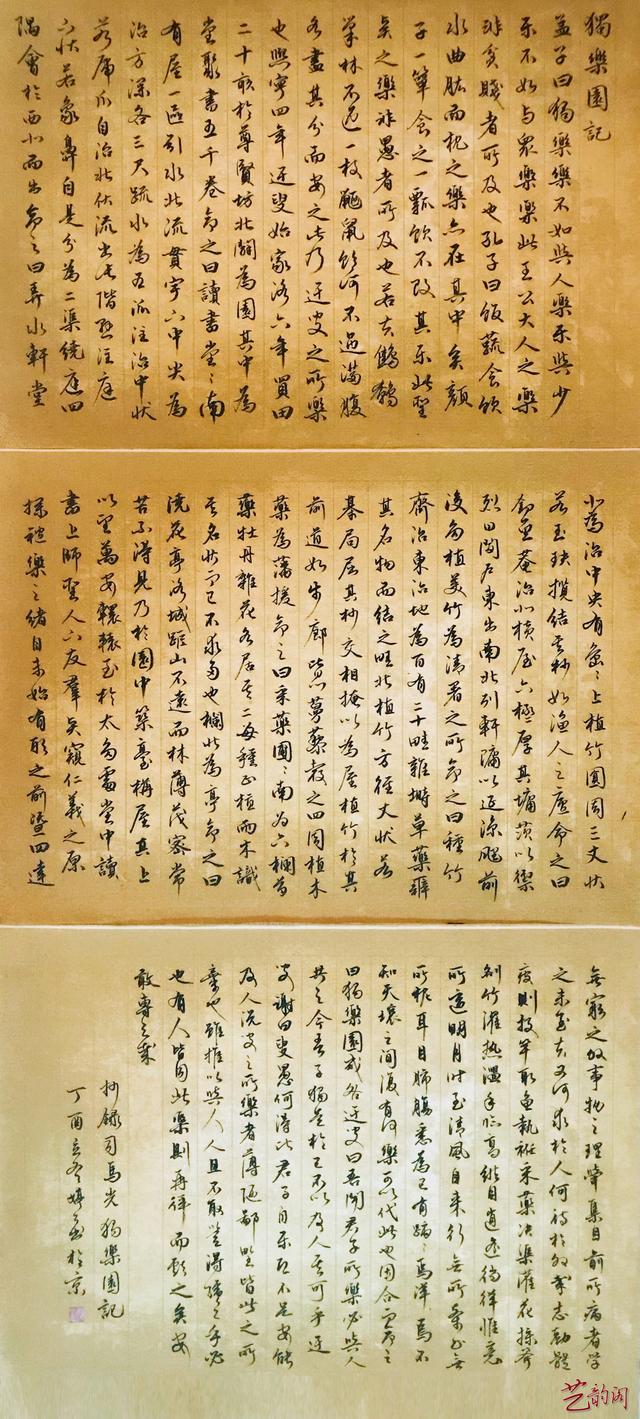 獨樂園記
孟子曰獨樂樂不如與人樂樂與少
樂樂不如與眾樂樂此王公大人之樂
非貧賤者所及也孔子曰飯蔬食飲
水曲肱而枕之樂亦在其中矣顏
子一簞食一瓢飲不改其樂此聖
賢之樂非愚者所及也若夫鷦鷯
巢林不過一枝鼴鼠飲河不過滿腹
各盡其分而安之此乃迂叟之所樂
也熙寧四年迂叟始家洛六年買田
二十畝於尊賢坊北闢為園其中為
堂聚書五千卷命之曰讀書堂堂南
有屋一區引水北流貫宇下中央為
沼方深各三尺疏水為五派注沼中狀
若虎爪自沼北伏流出北階懸注庭
下狀若象鼻自是分為二渠繞庭四
隅會於西北而出命之曰弄水軒堂
北為沼中央有島島上植竹圓周三丈狀
若玉玦攬結其杪如漁人之廬命之曰
釣魚菴沼北橫屋六楹厚其墉茨以禦
烈日開戶東出南北列軒牖以延涼颸前
後多植美竹為清暑之所命之曰種竹
齋沼東治地為百有二十畦雜蒔草藥辨
其名物而揭之畦北植竹方徑丈狀若
棊局屈其杪交相掩以為屋植竹於其
前道如步廊皆以蔓藥覆之四周植木
藥為藩援命之曰采藥圃圃南為六欄芍
藥牡丹雜花各居其二每種止植兩本識
其名狀而已不求多也欄北為亭命之曰
澆花亭洛城距山不遠而林薄茂密常
苦不得見乃於園中築臺構屋其上
以望萬安轘轅至於太室
書上師聖人下友羣賢窺仁義之原
探禮樂之緒自未始有形之前暨四達
無窮之外事物之理舉集目前所病者學
之未至夫又何求於人何待於外哉志勌體
疲則投竿取魚執衽采藥決渠灌花操斧
剖竹濯熱盥手臨高縱目逍遙徜徉惟意
所適明月時至清風自來行無所牽止無
所柅耳目肺腸悉為己有踽踽焉洋焉不
知天壤之間復有何樂可以代此也因合而命之
曰獨樂園或咎迂叟曰吾聞君子所樂必與人
共之今吾子獨足於己不以及人其可乎迂
叟謝曰叟愚何得比君子自樂恐不足安能
及人況叟之所樂者薄陋鄙野皆世之所
棄也雖推以與人人且不取豈得強之乎必
也有人肯同此樂則再拜而獻之矣安
敢專之哉
抄錄司馬光獨樂園記
丁酉立冬
於京
艺韵阁